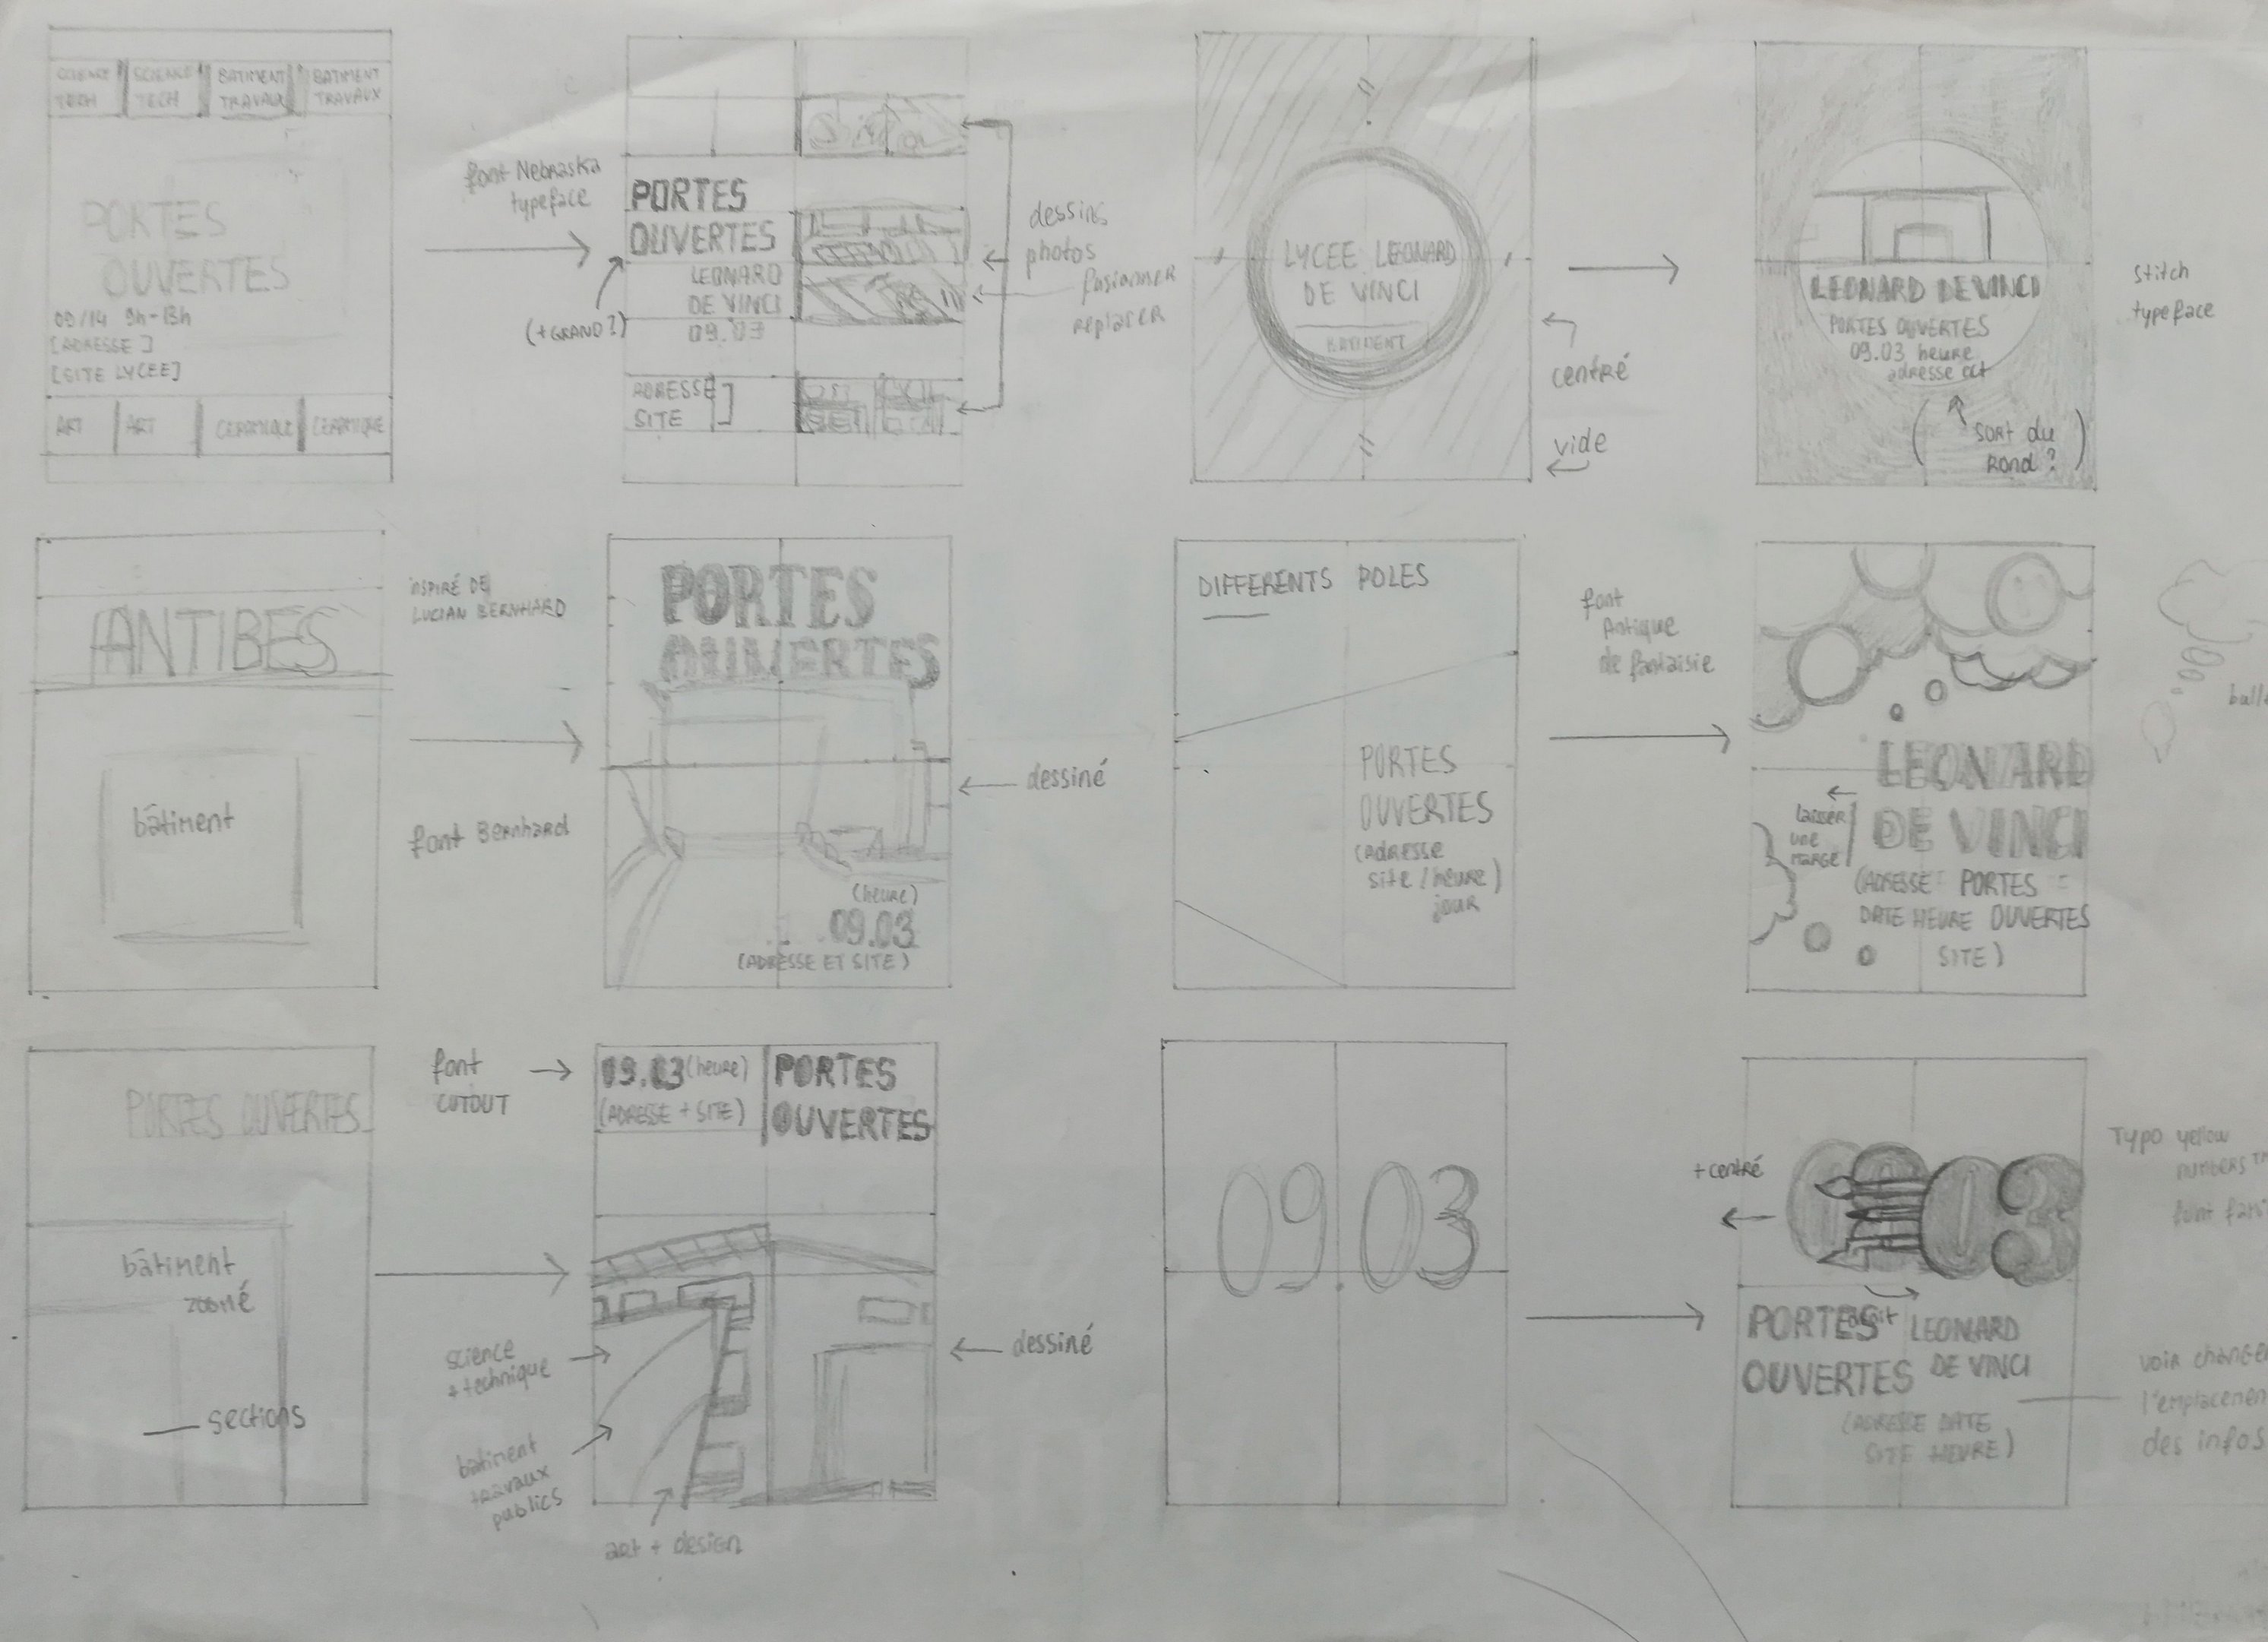 SCIENCE
TECH
SCIENCE
TECH
BATIMENT
TRAVAUX
BATIMENT
TRAVAUX
PORTES
OUVERTES
09/14 9h-13h
[ADRESSE]
[SITE LYCEE]
ART
ART
CERAMIQUE
CERAMIQUE
font Nebraska
typeface
(+GRAND?)
PORTES
OUVERTES
LEONARD
DE VINCI
09.03
ADRESSE
SITE
dessins
photos
fusionner
replacer
LYCEE LEONARD
DE VINCI
BATIMENT
centré
vide
LEONARD DE VINCI
PORTES OUVERTES
09.03 heure
adresse ect
(SORT du
ROND?)
stitch
typeface
ANTIBES
bâtiment
INSPIRÉ DE
LUCIAN BERNHARD
font Bernhard
PORTES
OUVERTES
(heure)
09.03
(ADRESSE ET SITE)
dessiné
DIFFERENTS POLES
PORTES
OUVERTES
(adresse
site/heure)
jour
font
Antique
de fantaisie
LEONARD
DE VINCI
laisser
une
marge
(ADRESSE PORTES
DATE HEURE OUVERTES
SITE)
PORTES OUVERTES
bâtiment
zoomé
sections
font
CUTOUT
09.03 (heure)
(ADRESSE + SITE)
PORTES
OUVERTES
science
+ technique
bâtiment
travaux
publics
art + design
dessiné
09.03
+ centré
09 03
PORTES
OUVERTES
LEONARD
DE VINCI
(ADRESSE DATE
SITE HEURE)
Typo yellow
numbers
font
voir changer
des infos